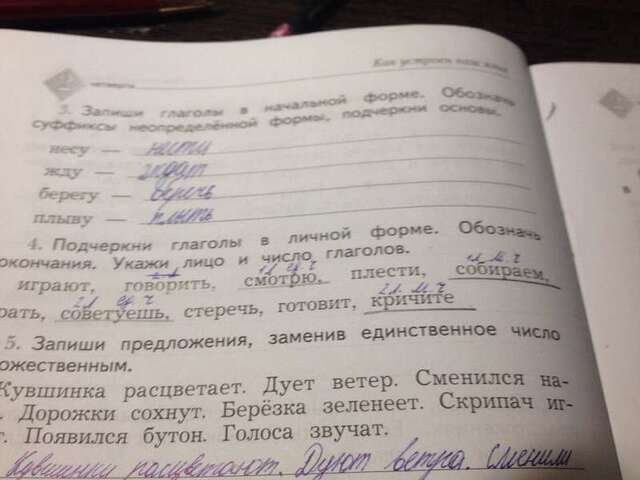 2
четверть
Как устроен наш язык
3. Запиши глаголы в начальной форме. Обозначь
суффиксы неопределённой формы, подчеркни основы.
несу — нести
жду — ждат
берегу — беречь
плыву — плыть
4. Подчеркни глаголы в личной форме. Обозначь
окончания. Укажи лицо и число глаголов.
1 л. ед. ч 1 л. м. ч
играют, говорить, смотрю, плести, собираем,
2 л. ед. ч 2 л. м. ч
рать, советуешь, стеречь, готовит, кричите
5. Запиши предложения, заменив единственное число
ожественным.
Кувшинка расцветает. Дует ветер. Сменился на-
. Дорожки сохнут. Берёзка зеленеет. Скрипач иг-
т. Появился бутон. Голоса звучат.
Кувшинки расцветают. Дуют ветра. Сменили